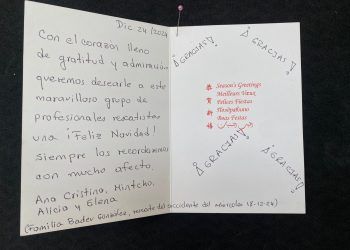 Dic 24/2024
Con el corazón lleno
de gratitud y admiración
queremos desearle a este
maravilloso grupo de
profesionales rescatistas
una ¡Feliz Navidad!
Siempre los recordaremos
con mucho afecto,
Ana Cristina,
Alicia y Elena
(Familia Bader González, rescate del accidente del miércoles 18-12-24)
¡GRACIAS!
¡GRACIAS!
Season's Greetings
Meilleurs Vœux
Felices Fiestas
Boas Festas
恭
賀
新
禧
¡GRACIAS!
¡GRACIAS!